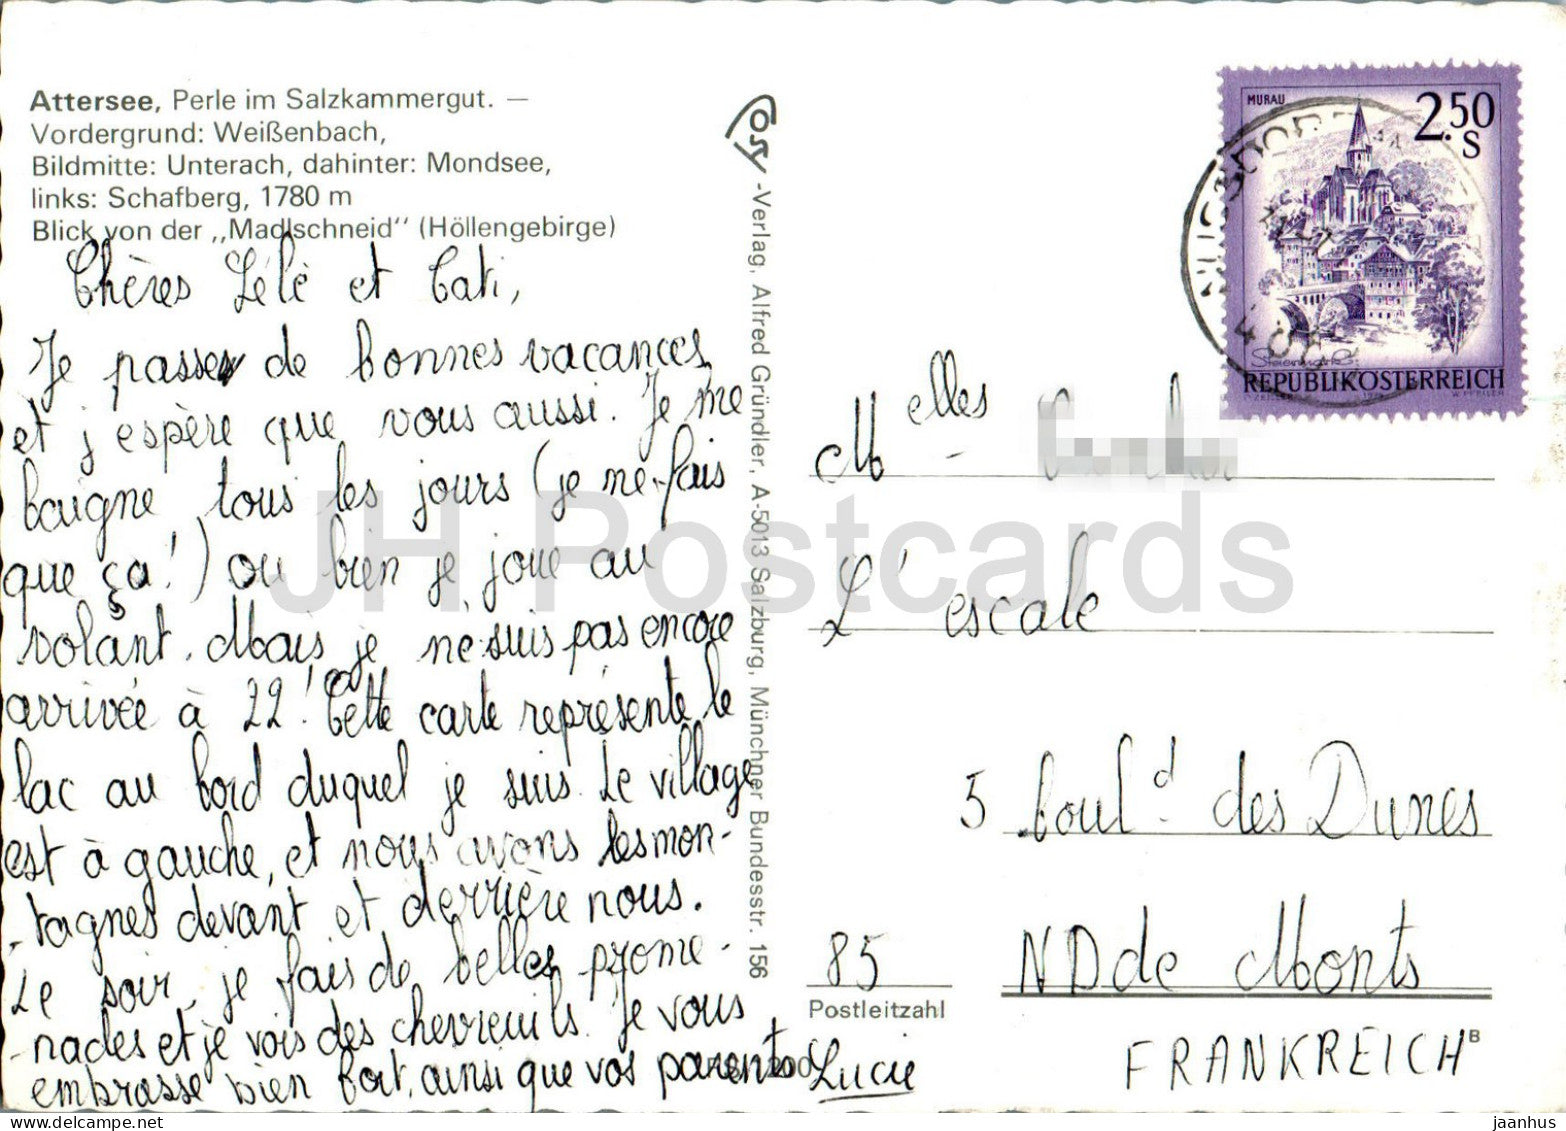 Attersee, Perle im Salzkammergut. —
Vordergrund: Weißenbach,
Bildmitte: Unterach, dahinter: Mondsee,
links: Schafberg, 1780 m
Blick von der „Madlschneid“ (Höllengebirge)
Chères Lélè et Cati,
Je passe de bonnes vacances
et j'espère que vous aussi. Je me
baigne tous les jours (je ne fais
que ça!) ou bien je joue au
volant. Mais je ne suis pas encore
arrivée à 22! Cette carte représente le
lac au bord duquel je suis. Le village
est à gauche, et nous avons les mon-
-tagnes devant et derrière nous.
Le soir, je fais de belles prome-
-nades et je vois des chevreuils. Je vous
embrasse bien fort, ainsi que vos parents
Lucie
Ossy
-Verlag, Alfred Gründler, A-5013 Salzburg, Münchner Bundesstr. 156
MURAU
2.50
S
Steiermark
REPUBLIK ÖSTERREICH
Melles
L'escale
5 boul^d. des Dunes
85 ND de Monts
Postleitzahl
FRANKREICH
B
JH Postcards
jaanhus